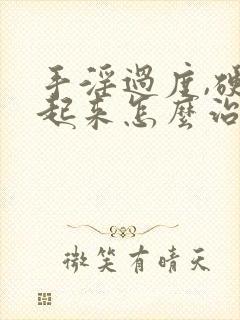 手淫過度,硬
起来怎麼治
微笑有晴天